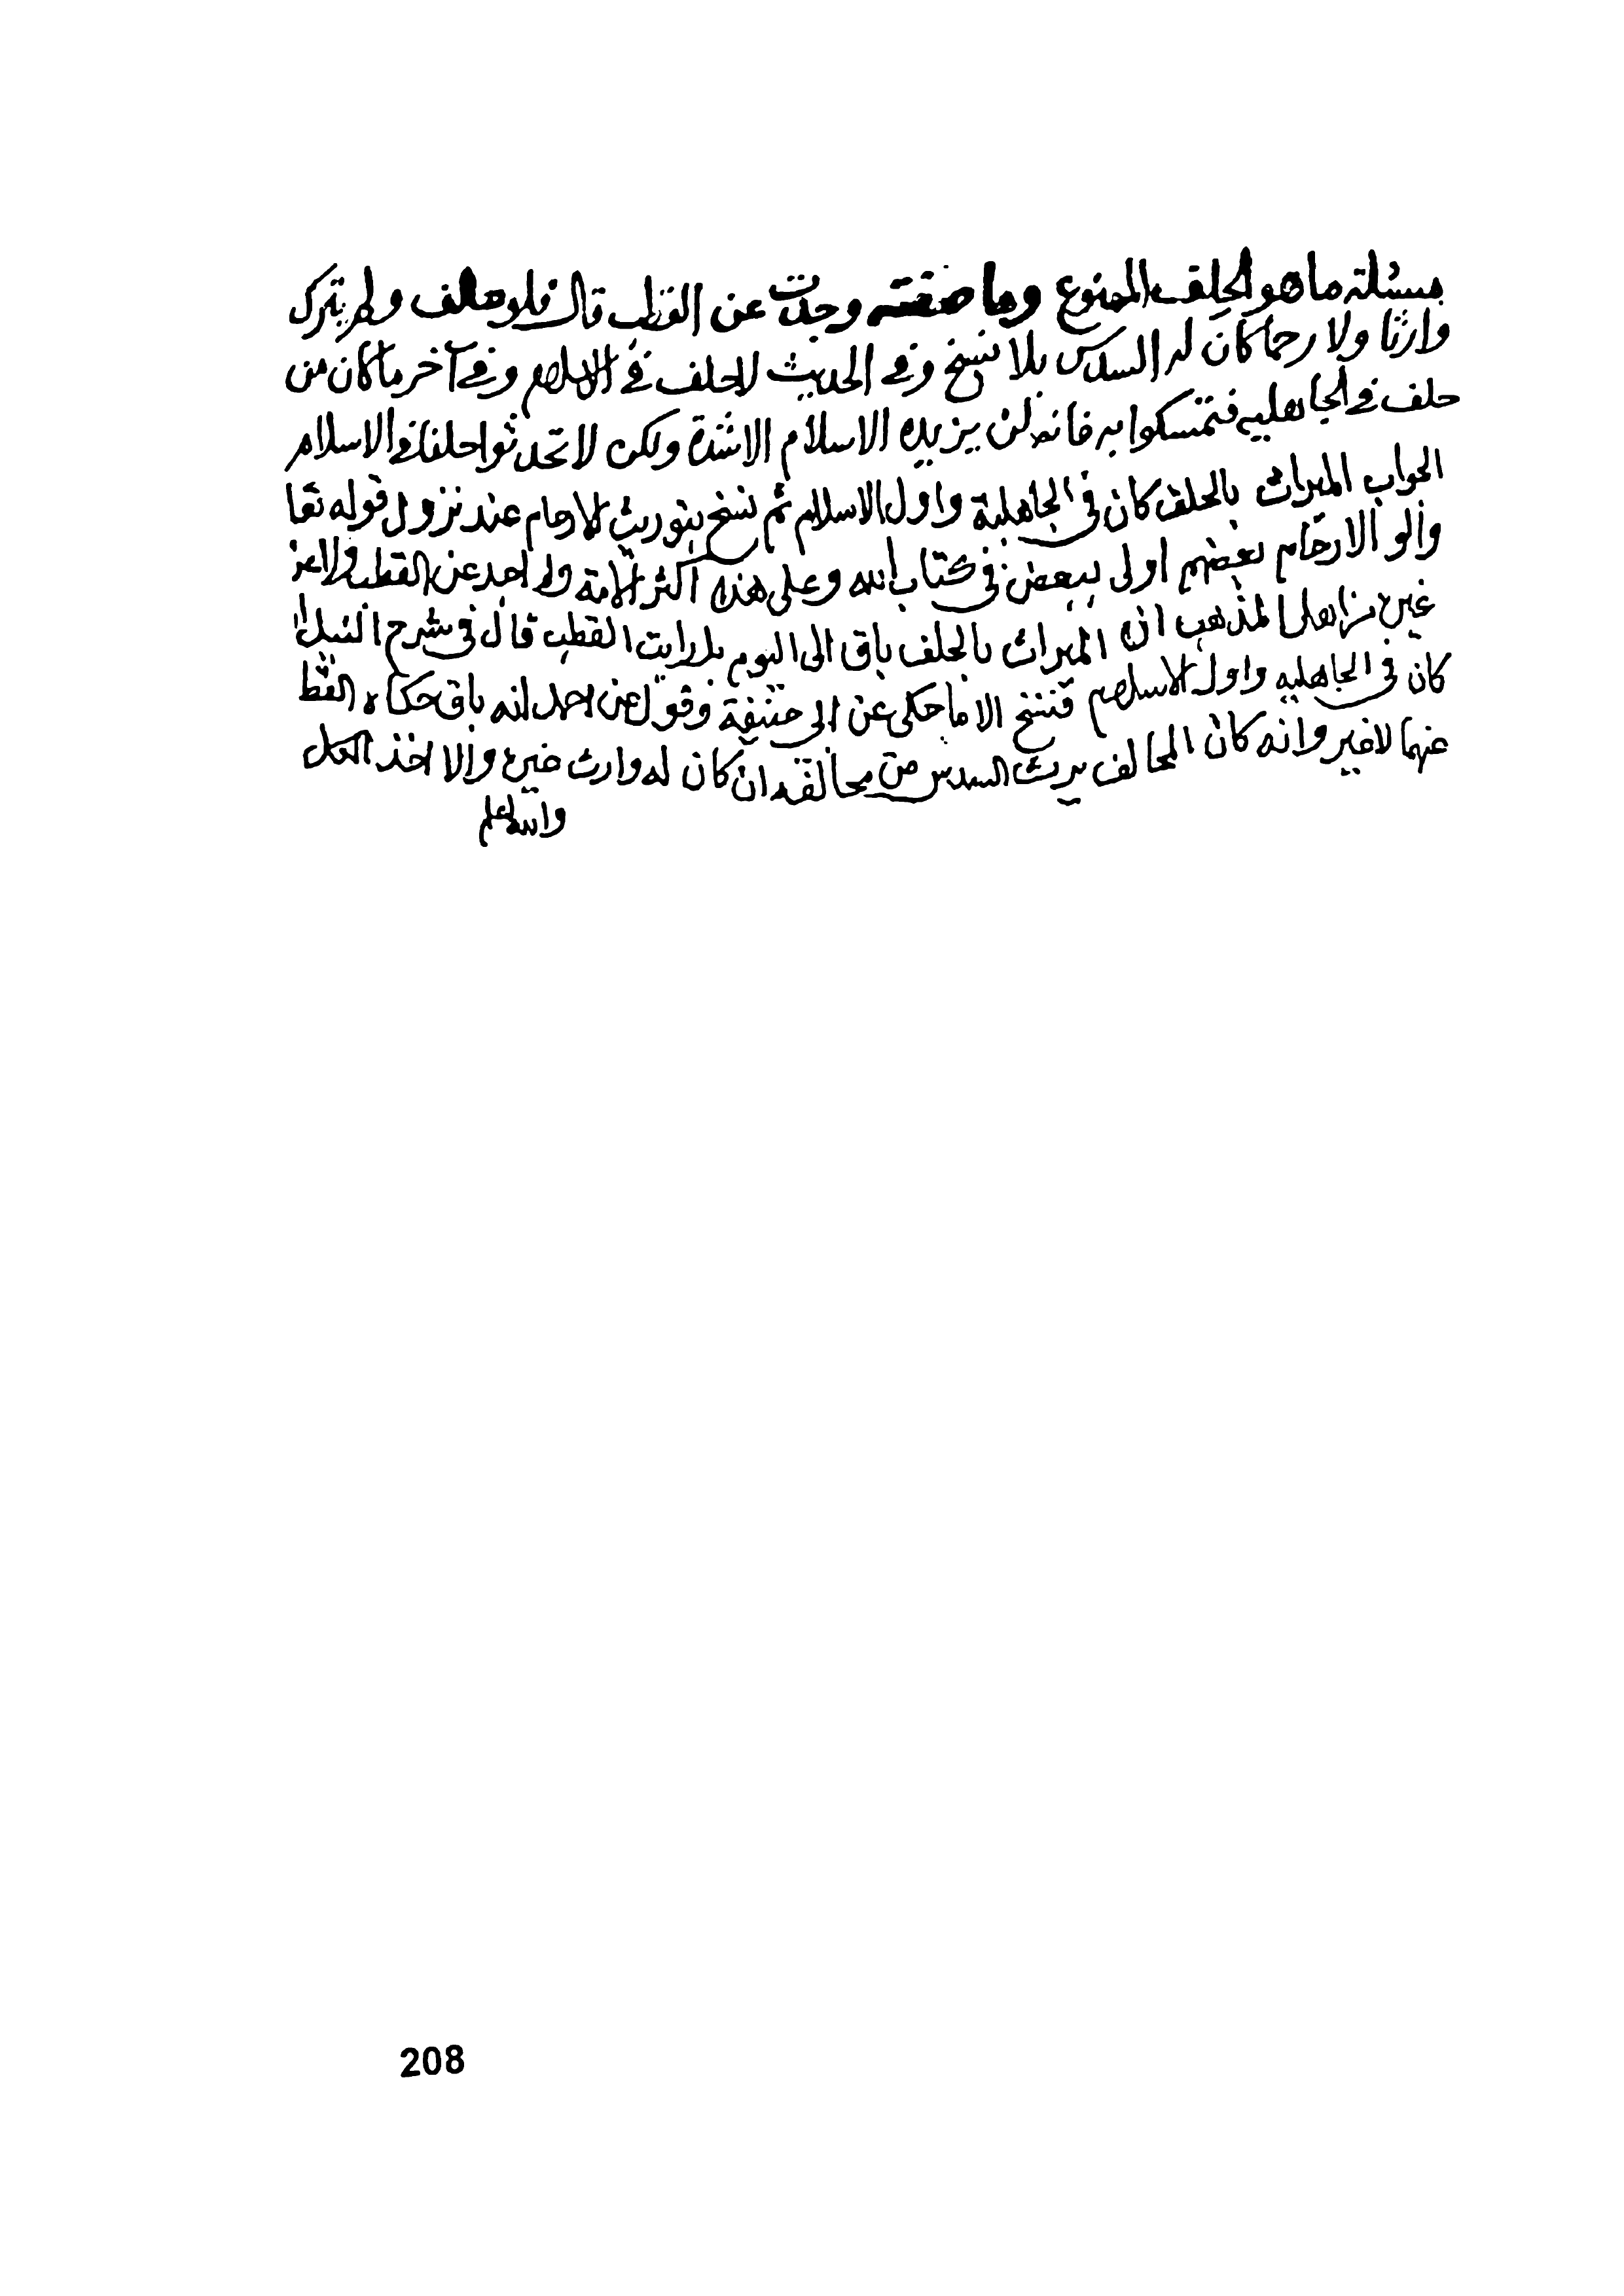 مسئلة ما هو الحلف الممنوع وما صفته وجدت عن القطب قال فلو حالف ولم يترك
وارثا ولا رحما كان له السدس بلا نسخ وفي الحديث لا حلف في الاسلام وفي آخر ما كان من
حلف في الجاهلية فتمسكوا به فانه لن يزيده الاسلام الا شدة ولكن لا تحدثوا حلفا في الاسلام
الجواب الميراث بالحلف كان في الجاهلية واول الاسلام ثم نسخ بتوريث الارحام عند نزول قوله تعا
وألو الارحام بعضهم اولى ببعض في كتاب الله وعلى هذه اكثر الامة ولم اجد عن القطب ولا عن
غيره من اهل المذهب ان الميراث بالحلف باق الى اليوم بل رايت القطب قال في شرح النيل
كان في الجاهليه واول الاسلام فنسخ الا ما حكى عن ابي حنيفة وقول عن احمد انه باق حكاه القط
عنهما لا غير وانه كان المحالف يرث السدس من محالفه ان كان له وارث غيره والا اخذ الكل
والله اعلم
208